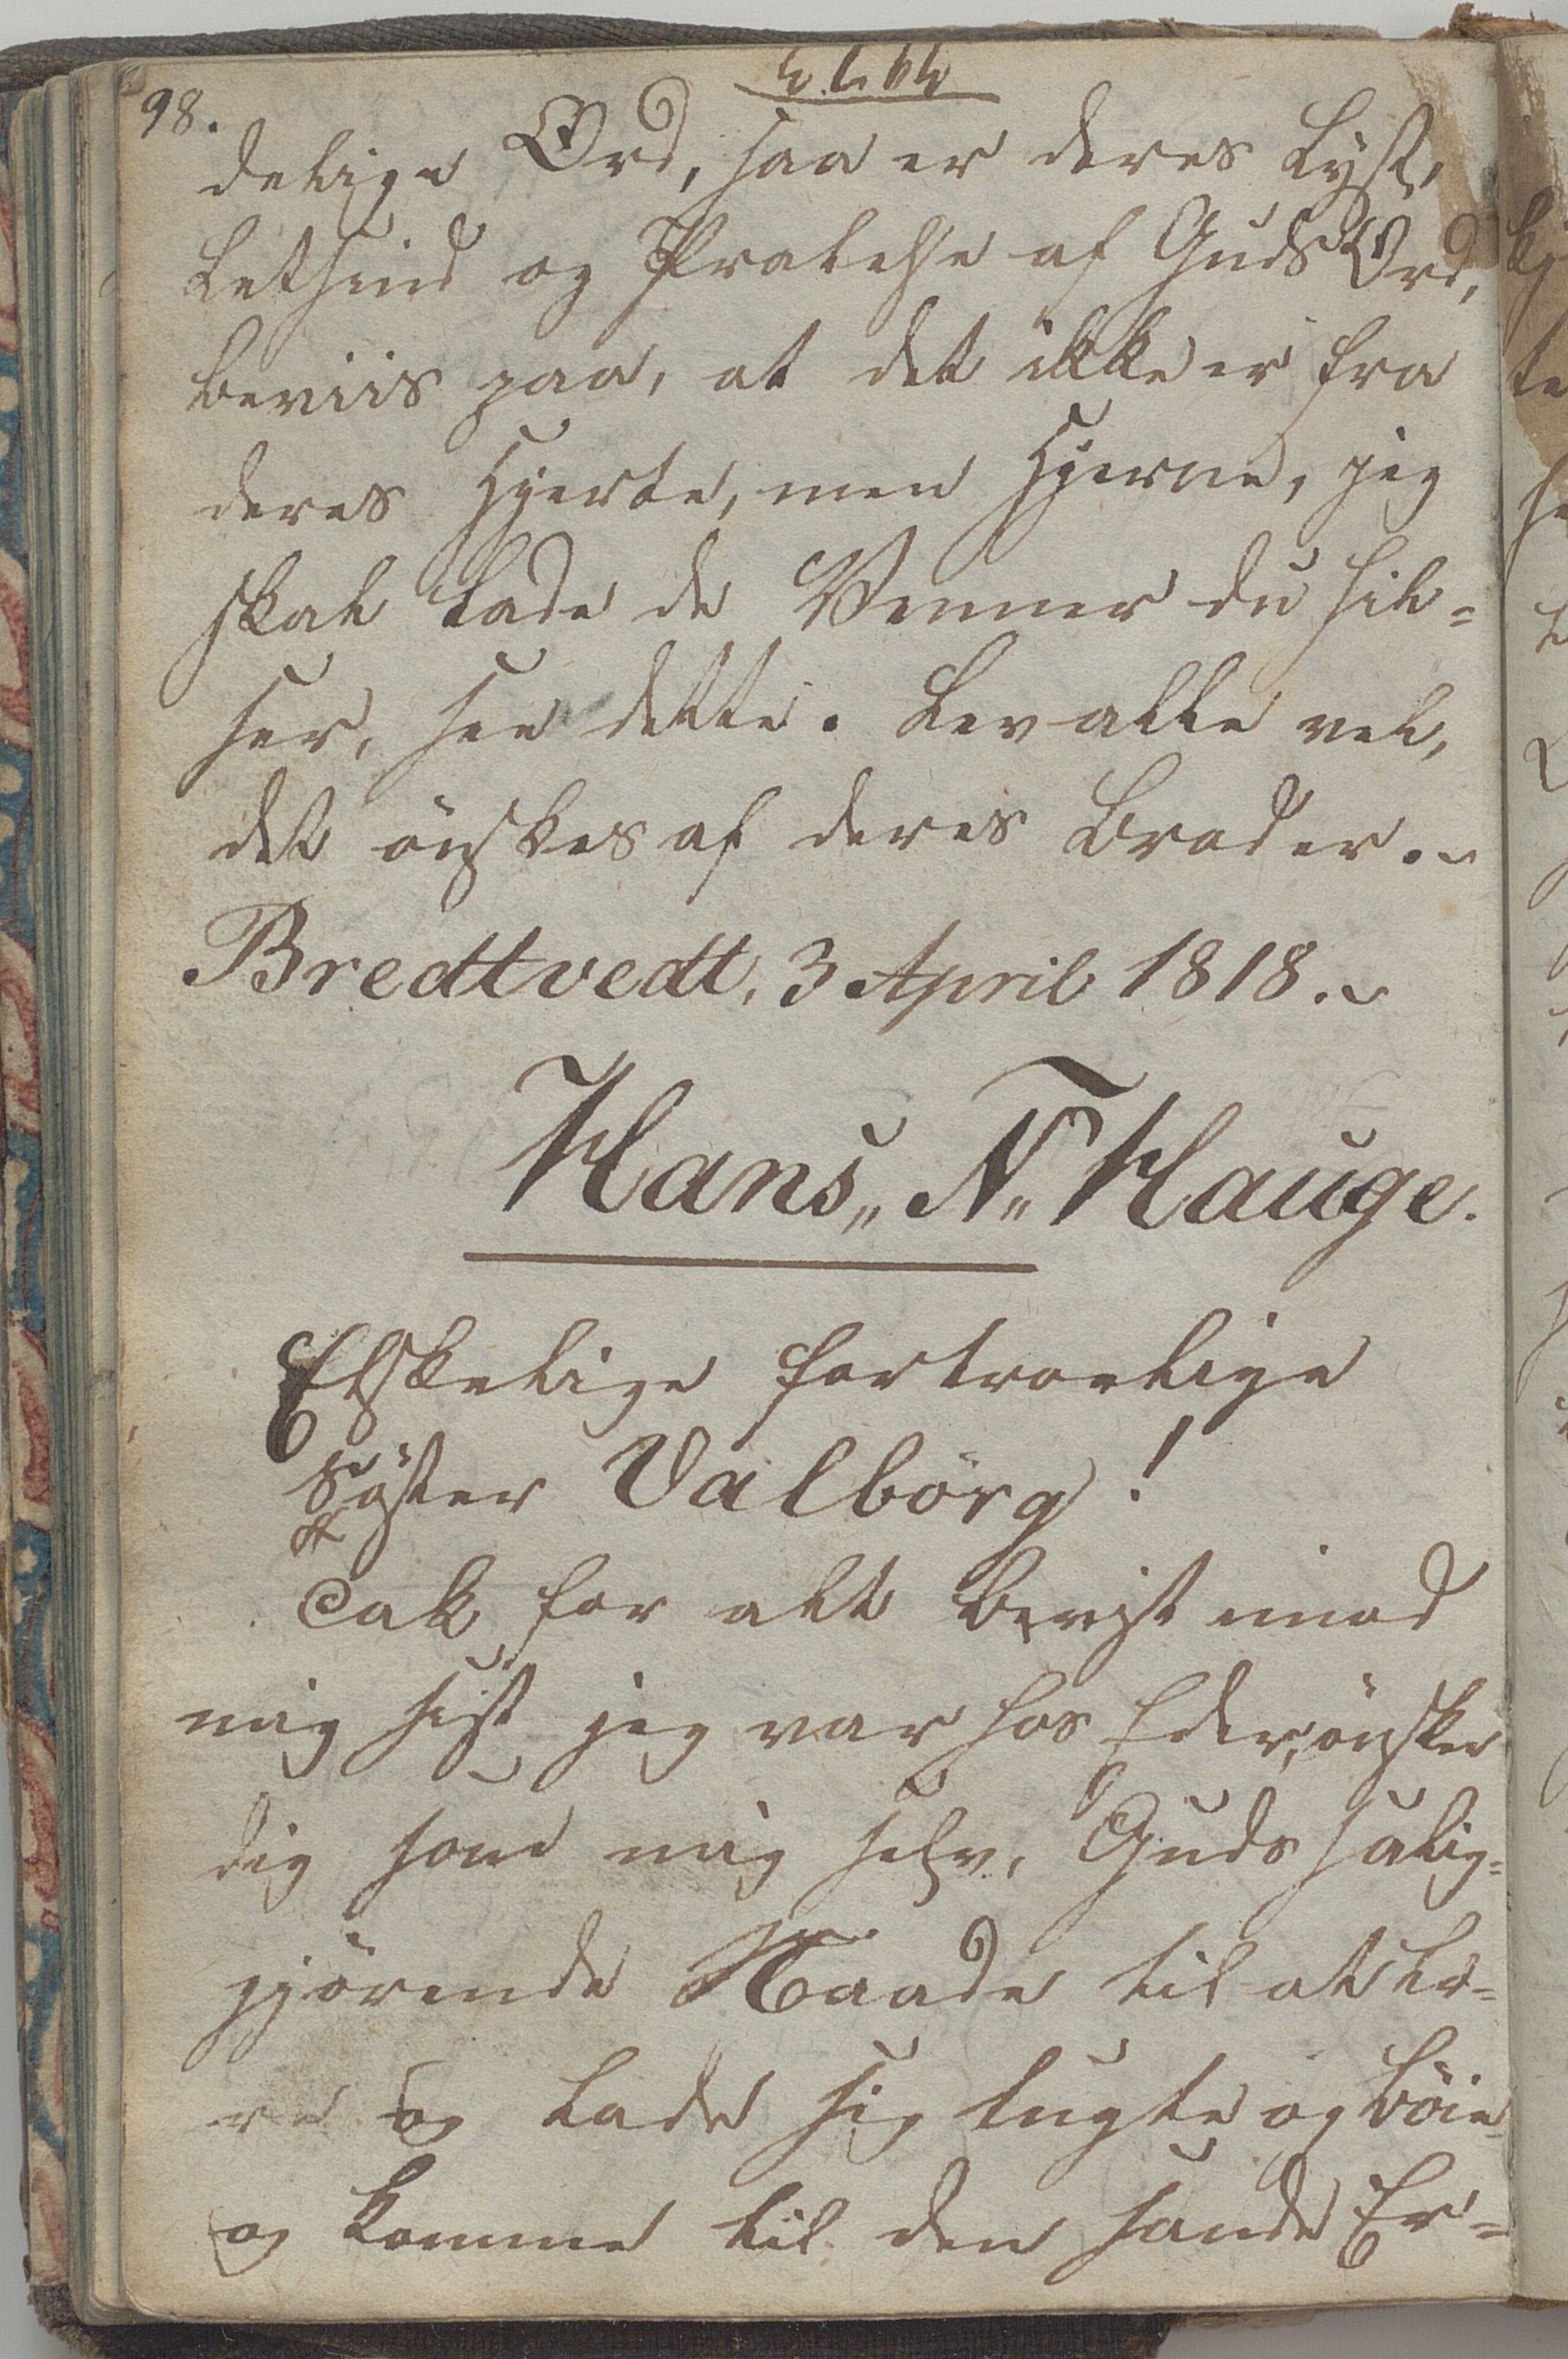 98.
delige Ord, saa er deres Lyst,
Letsind og Pralelse af Guds Ord,
beviis paa, at det ikke er fra
deres Hjerte, men Hjerne, jeg
skal lade de Venner du hil=
ser, see dette. Lev alle vel,
det önskes af deres Broder.
Bredtvedt, 3 April 1818.
Hans„ N„ Hauge.
Elskelige fortroelige
Söster Valborg!
Tak for alt bevist imod
mig sist jeg var hos Eder, önsker
dig som mig selv, Guds salig=
gjörende Naade til at læ=
re og lade sig tugte og böie
og komme til den sande Er=